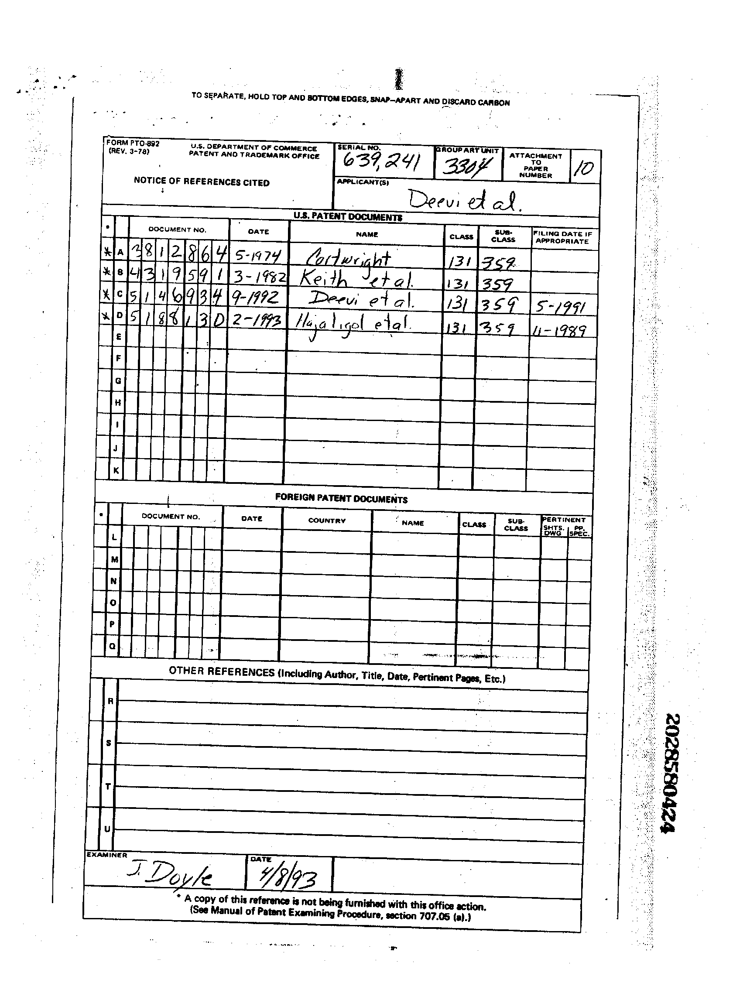 TO SEPARATE, HOLD TOP AND BOTTOM EDGES, SNAP-APART AND DISCARD CARBON
FORM PTO-892 (REV. 3-78)
U.S. DEPARTMENT OF COMMERCE PATENT AND TRADEMARK OFFICE
SERIAL NO. 639,241
GROUP ART UNIT 3304
ATTACHMENT TO PAPER NUMBER 10
NOTICE OF REFERENCES CITED
APPLICANT(S) Deevi et al.
U.S. PATENT DOCUMENTS
* DOCUMENT NO. DATE NAME CLASS SUB-CLASS FILING DATE IF APPROPRIATE
* A 3812864 5-1974 Cartwright 131 359
* B 4319591 3-1982 Keith et al. 131 359
* C 5146934 9-1992 Deevi et al. 131 359 5-1991
* D 5188130 2-1993 Hajaligol et al. 131 359 11-1989
E
F
G
H
I
J
K
FOREIGN PATENT DOCUMENTS
* DOCUMENT NO. DATE COUNTRY NAME CLASS SUB-CLASS PERTINENT SHTS. DWG PP. SPEC.
L
M
N
O
P
Q
OTHER REFERENCES (Including Author, Title, Date, Pertinent Pages, Etc.)
R
S
T
U
EXAMINER J. Doyle
DATE 4/8/93
* A copy of this reference is not being furnished with this office action.
(See Manual of Patent Examining Procedure, section 707.05 (a).)
2028580424